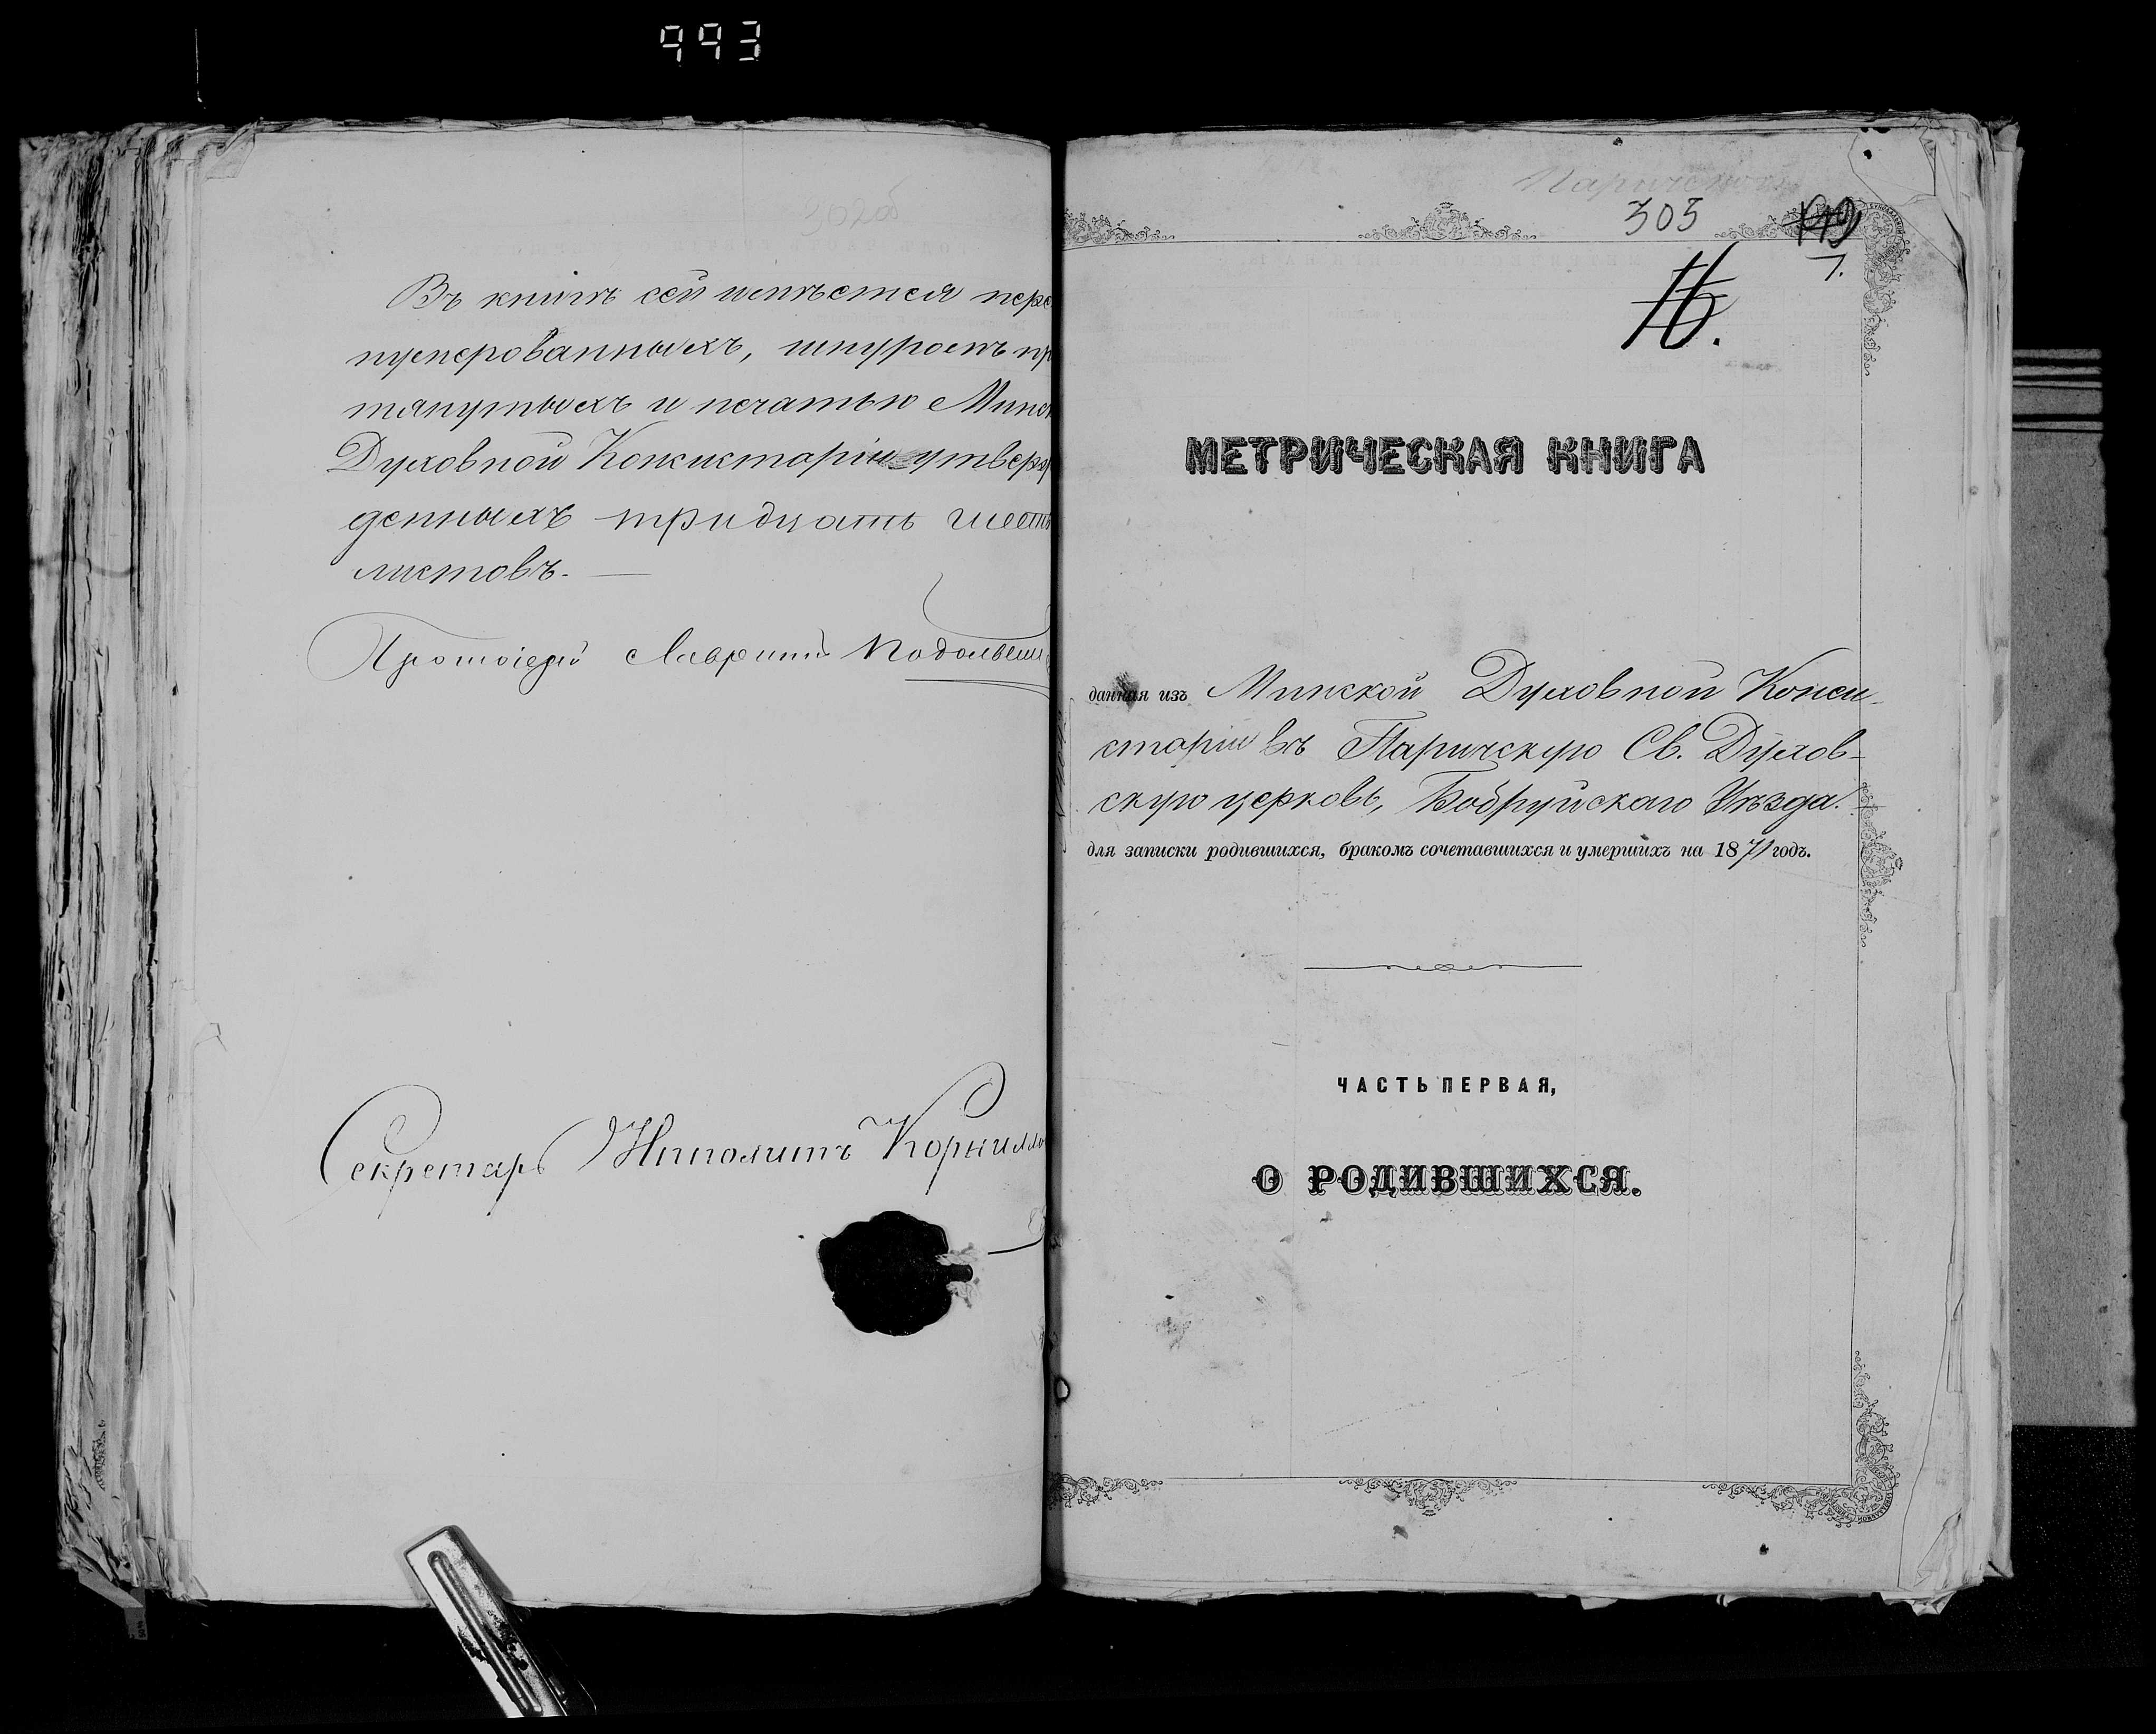 993
302об
Въ книгѣ сей имѣется пере
нумерованныхъ, шнуромъ пр
тянутыхъ и печатью Минск
Духовной Консисторіи утверж
денныхъ тридцать шесть
листовъ.
Протоіерей Лаврентій Подольскі
Секретарь Ипполитъ Корнилло
Паричской
303
7.
16.
МЕТРИЧЕСКАЯ КНИГА
данная изъ Минской Духовной Конси-
сторіи въ Паричскую Св. Духов-
скую церковь, Бобруйскаго Уѣзда.
для записки родившихся, бракомъ сочетавшихся и умершихъ на 1871 годъ.
ЧАСТЬ ПЕРВАЯ,
О РОДИВШИХСЯ.